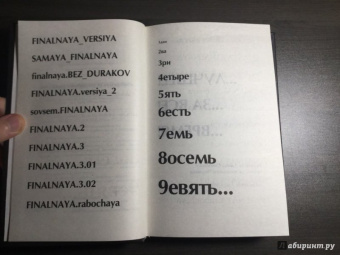 FINALNAYA_VERSIYA
SAMAYA_FINALNAYA
finalnaya.BEZ_DURAKOV
FINALNAYA.versiya_2
sovsem.FINALNAYA
FINALNAYA.2
FINALNAYA.3
FINALNAYA.3.01
FINALNAYA.3.02
FINALNAYA.rabochaya
2ва
3ри
4етыре
5ять
6есть
7емь
8осемь
9евять...
Лабиринт.ру